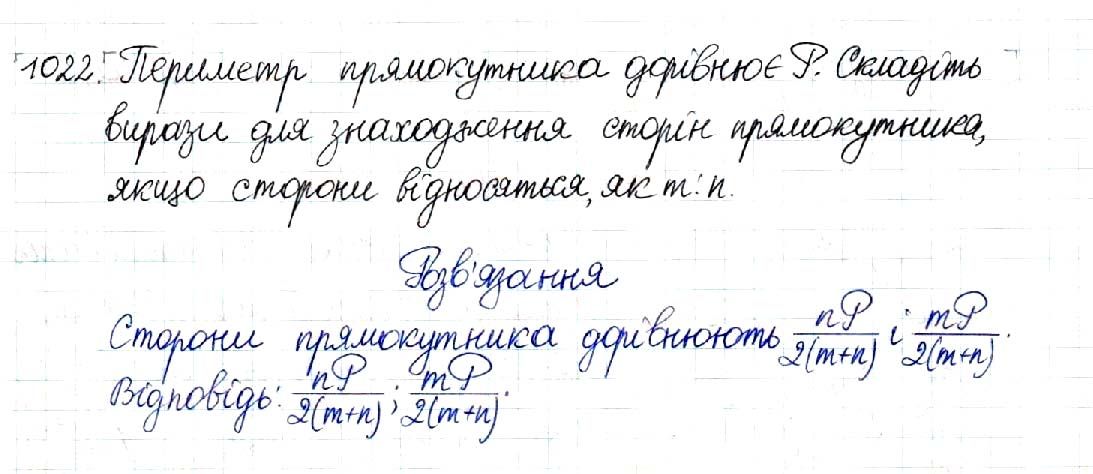 1022. Периметр прямокутника дорівнює P. Складіть
вирази для знаходження сторін прямокутника,
якщо сторони відносяться, як m:n.
Розв'язання
Сторони прямокутника дорівнюють nP/2(m+n) і mP/2(m+n).
Відповідь: nP/2(m+n); mP/2(m+n).